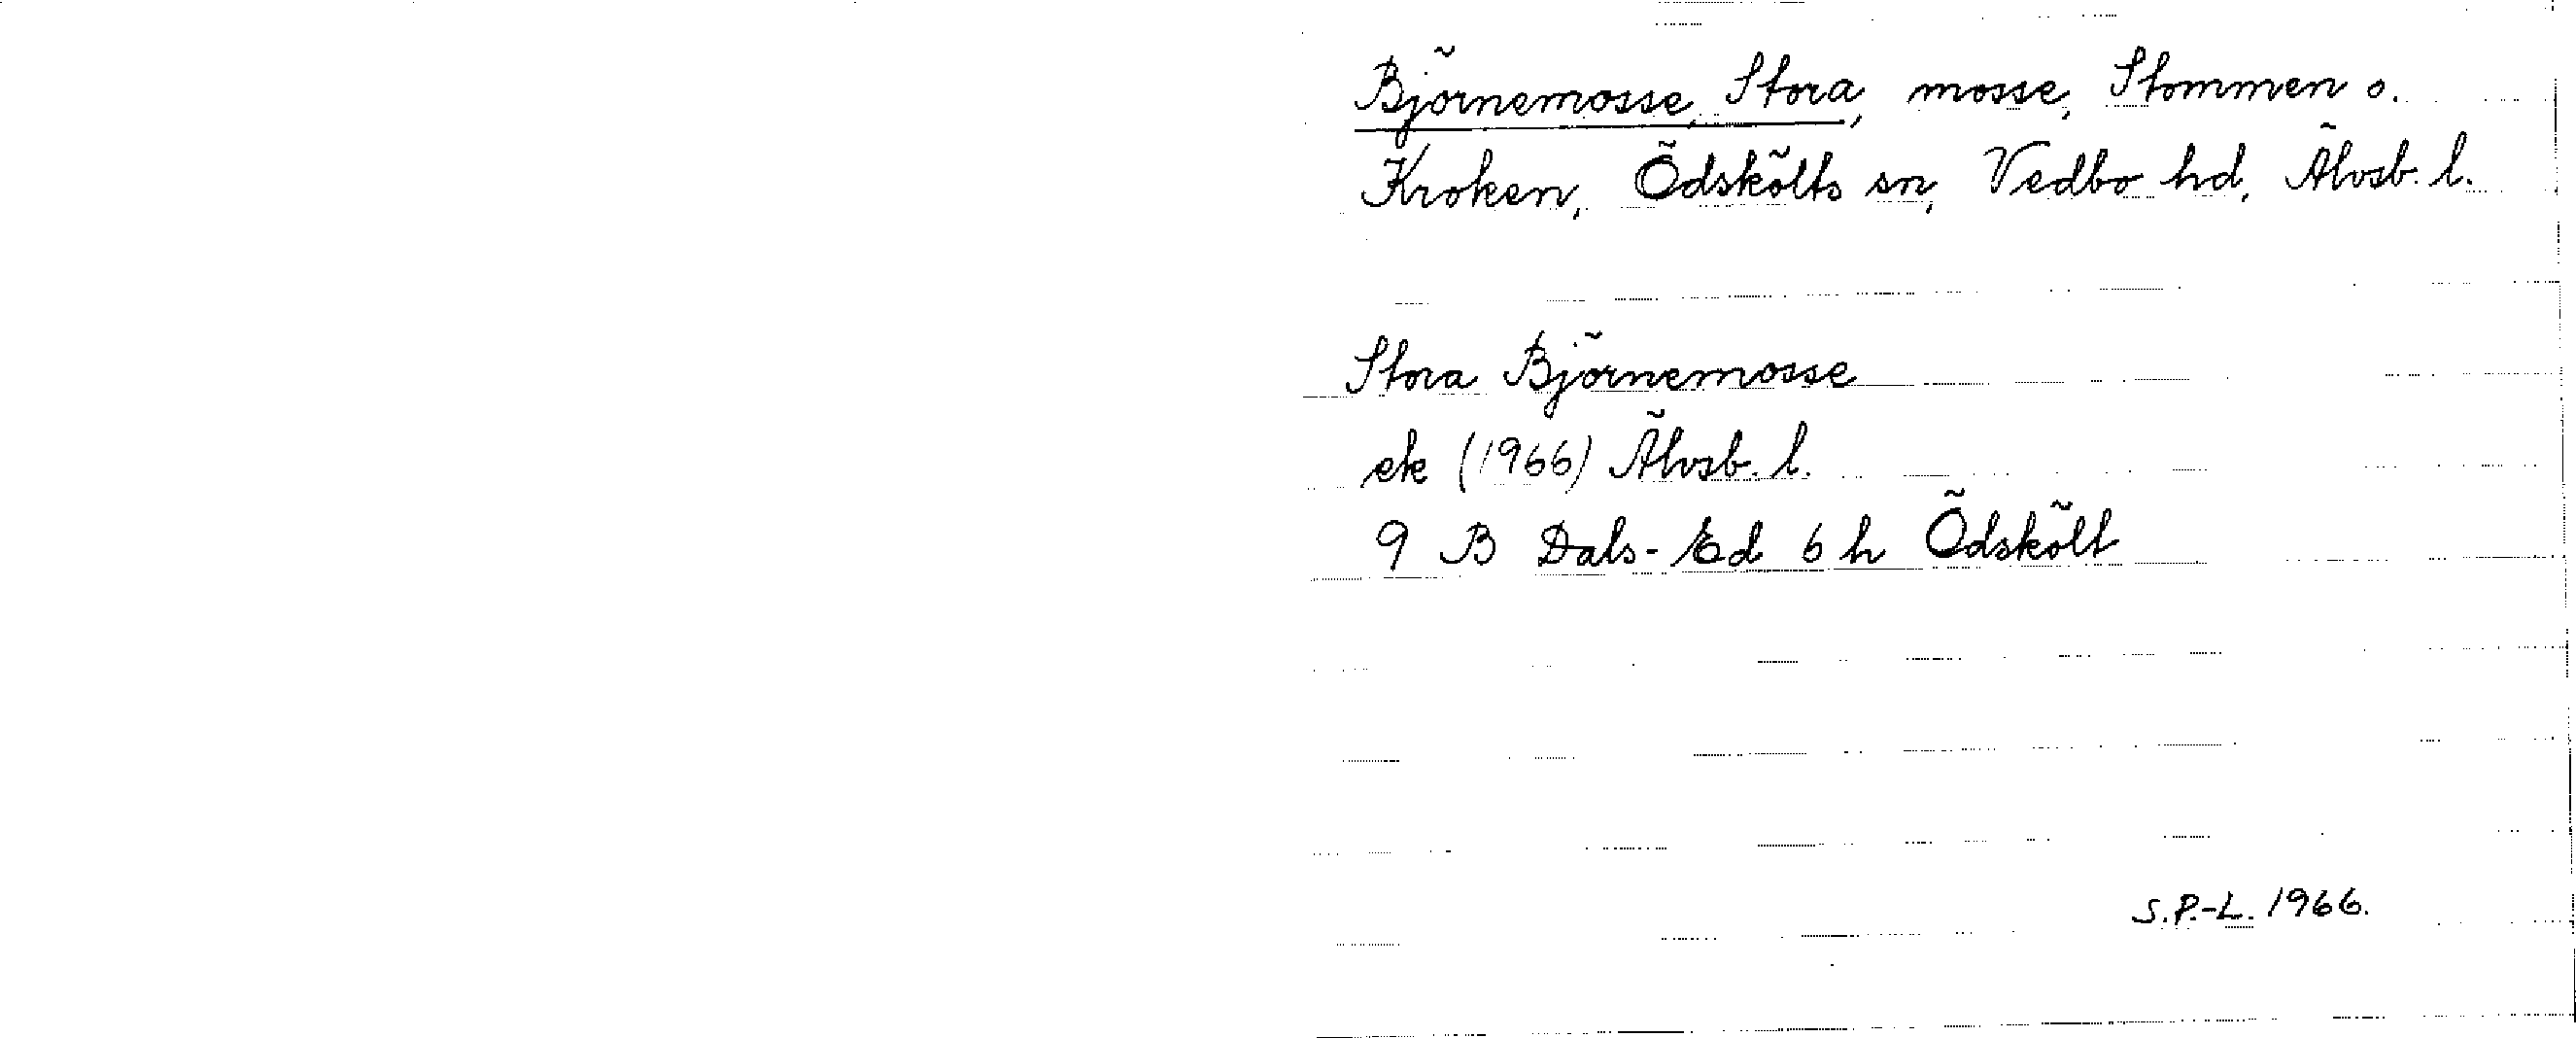 Björnemosse, Stora, mosse, Stommen o.
Kroken, Ödskölts sn, Vedbo hd, Älvsb. l.
Stora Björnemosse
ek (1966) Älvsb. l.
9 B Dals-Ed 6 h Ödskölt
S.P.-L. 1966.